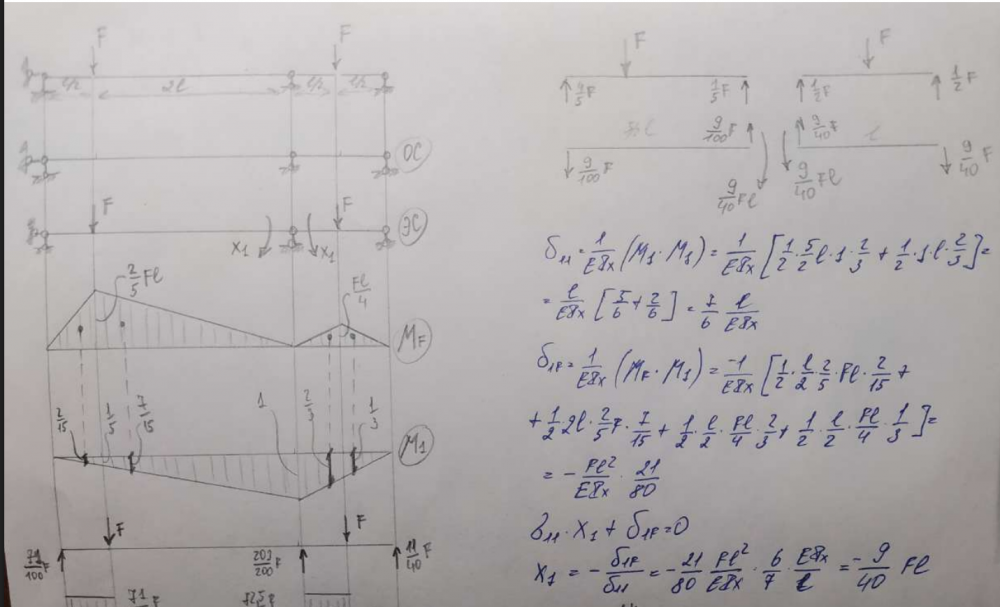 F F
l/2 2l l/2 l/2
ОС
F F
X₁ X₁ ЭС
2/5 Fl Fl/4
M_F
2/15 1/5 7/15 1 2/3 1/3
M₁
F F
71/100 F 203/200 F 11/40 F
71/ F
F F
4/5 F 1/5 F 1/2 F 1/2 F
9/100 F 9/100 F 9/40 F l 9/40 F
9/40 Fl 9/40 Fl
δ₁₁ = 1/EIx (M₁ · M₁) = 1/EIx [1/2 · 5/2 l · 1 · 2/3 + 1/2 · 1 · l · 2/3] =
= l/EIx [5/6 + 2/6] = 7/6 l/EIx
δ₁F = 1/EIx (M_F · M₁) = -1/EIx [1/2 · l/2 · 2/5 · Fl · 2/15 +
+ 1/2 2l · 2/5 F · 7/15 + 1/2 · l/2 · Fl/4 · 2/3 + 1/2 · l/2 · Fl/4 · 1/3] =
= - Fl²/EIx · 21/80
δ₁₁ · X₁ + δ₁F = 0
X₁ = - δ₁F/δ₁₁ = - 21/80 Fl²/EIx · 6/7 · EIx/l = -9/40 Fl